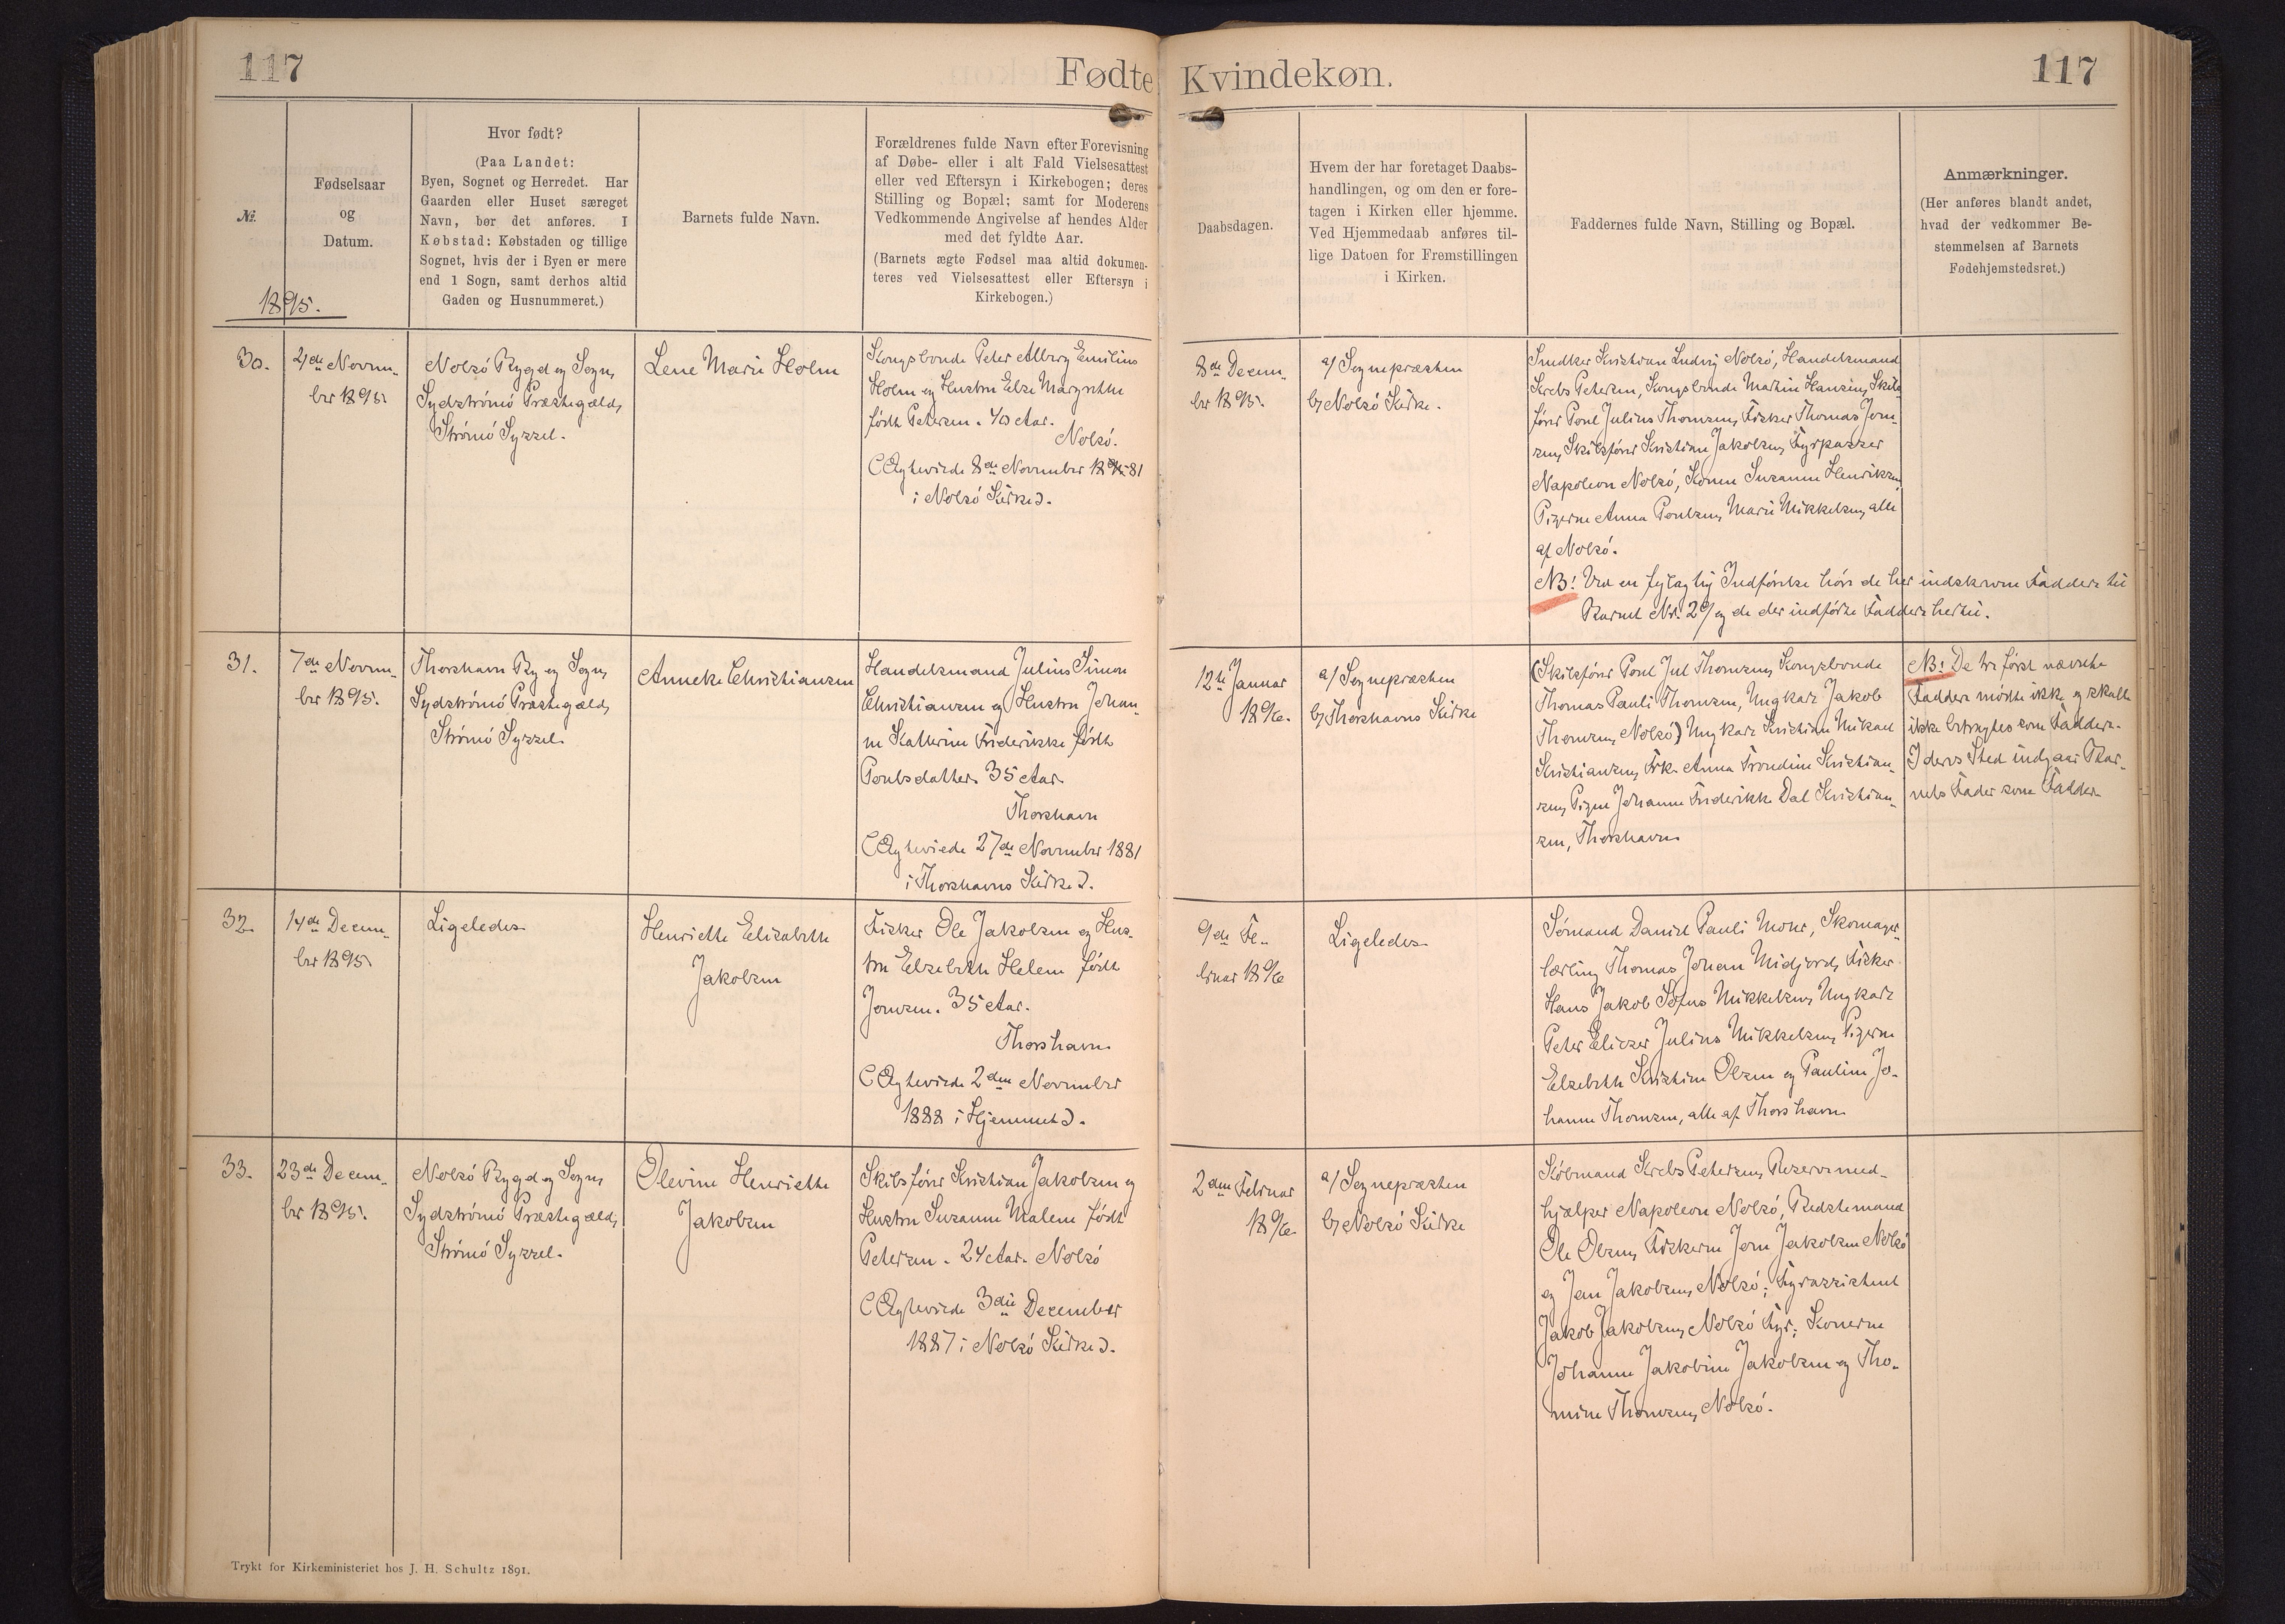 117
Fødte
Kvindekøn.
117
№.
Fødselsaar
og
Datum.
Hvor født?
(Paa Landet:
Byen, Sognet og Herredet. Har
Gaarden eller Huset særeget
Navn, bør det anføres. I
Købstad: Købstaden og tillige
Sognet, hvis der i Byen er mere
end 1 Sogn, samt derhos altid
Gaden og Husnummeret.)
Barnets fulde Navn.
Forældrenes fulde Navn efter Forevisning
af Døbe- eller i alt Fald Vielsesattest
eller ved Eftersyn i Kirkebogen; deres
Stilling og Bopæl; samt for Moderens
Vedkommende Angivelse af hendes Alder
med det fyldte Aar.
(Barnets ægte Fødsel maa altid dokumen-
teres ved Vielsesattest eller Eftersyn i
Kirkebogen.)
Daabsdagen.
Hvem der har foretaget Daabs-
handlingen, og om den er fore-
tagen i Kirken eller hjemme.
Ved Hjemmedaab anføres til-
lige Datoen for Fremstillingen
i Kirken.
Faddernes fulde Navn, Stilling og Bopæl.
Anmærkninger.
(Her anføres blandt andet,
hvad der vedkommer Be-
stemmelsen af Barnets
Fødehjemstedsret.)
1895.
30.
de Novem-
ber 1895.
Nolsö Bygd og Sogn,
Sydströmö Præstegæld,
Strömö Syssel.
Lene Marie Holm
Kongsbonde Peter Alberg Emilius
Holm og Hustru Else Margrethe
født Petersen. 40 Aar.
Nolsö.
(Ægteviede 8de November 1881
i Nolsö Kirke).
8de Decem-
ber 1895.
a/ Sognepræsten
b/ Nolsö Kirke.
Snedker Kristian Ludvig Nolsö, Handelsmand
Krebs Petersen, Kongsbonde Martin Hansen, Skibs-
fører Poul Julius Thomsen, Fisker Thomas Joen-
sen, Skibsfører Kristian Jakobsen, Fyrpasser
Napoleon Nolsö, Konen Susanne Henriksen,
Pigerne Anna Poulsen, Marie Mikkelsen, alle
af Nolsö.
NB! Ved en fejlagtig Indførelse høre de her indskrevne Faddere til
Barnet Nr. 29 og de der indførte Faddere hertil.
31.
7de Novem-
ber 1895.
Thorshavn By og Sogn,
Sydströmö Præstegæld,
Strömö Syssel.
Anneke Christiansen
Handelsmand Julius Simon
Christiansen og Hustru Johan-
ne Kathrine Frederikke født
Poulsdatter. 35 Aar.
Thorshavn
(Ægteviede 27de November 1881
i Thorshavns Kirke).
12te Januar
1896.
a/ Sognepræsten
b/ Thorshavns Kirke
(Skibsfører Poul Jul Thomsen, Kongsbonde
Thomas Pauli Thomsen, Ungkarl Jakob
Thomsen, Nolsö) Ungkarl Kristian Mikael
Kristiansen, Frk. Anna Trondine Kristian-
sen, Pigen Johanne Frederikke Dal Kristian-
sen, Thorshavn
NB! De tre først nævnte
Faddere mødte ikke og skulle
ikke betragtes som Faddere.
I deres Sted indgaar Bar-
nets Fader som Fadder.
32.
14de Decem-
ber 1895.
Ligeledes.
Henriette Elisabeth
Jakobsen
Fisker Ole Jakobsen og Hus-
tru Elsebeth Helene født
Joensen. 35 Aar.
Thorshavn
(Ægteviede 2den November
1888 i Hjemmet).
9de Fe-
bruar 1896
Ligeledes.
Sømand Daniel Pauli Mohr, Skomager-
lærling Thomas Johan Midjord, Fisker
Hans Jakob Sofus Mikkelsen, Ungkarl
Peter Elieser Julius Mikkelsen, Pigerne
Elsebeth Kristine Olsen og Pauline Jo-
hanne Thomsen, alle af Thorshavn
33.
23de Decem-
ber 1895.
Nolsö Bygd og Sogn,
Sydströmö Præstegæld,
Strömö Syssel.
Olevine Henriette
Jakobsen
Skibsfører Kristian Jakobsen og
Hustru Susanne Malene født
Petersen. 24 Aar. Nolsö
(Ægteviede 3die December
1887 i Nolsö Kirke).
2den Februar
1896.
a/ Sognepræsten
b/ Nolsö Kirke
Købmand Krebs Petersen, Reservemed-
hjælper Napoleon Nolsö, Bedstemand
Ole Olsen, Fiskerne Joen Jakobsen Nolsö
og Jens Jakobsen, Nolsö; Fyrassistent
Jakob Jakobsen, Nolsö Fyr; Konerne
Johanne Jakobine Jakobsen og Tho-
mine Thomsen, Nolsö.
Trykt for Kirkeministeriet hos J. H. Schultz 1891.